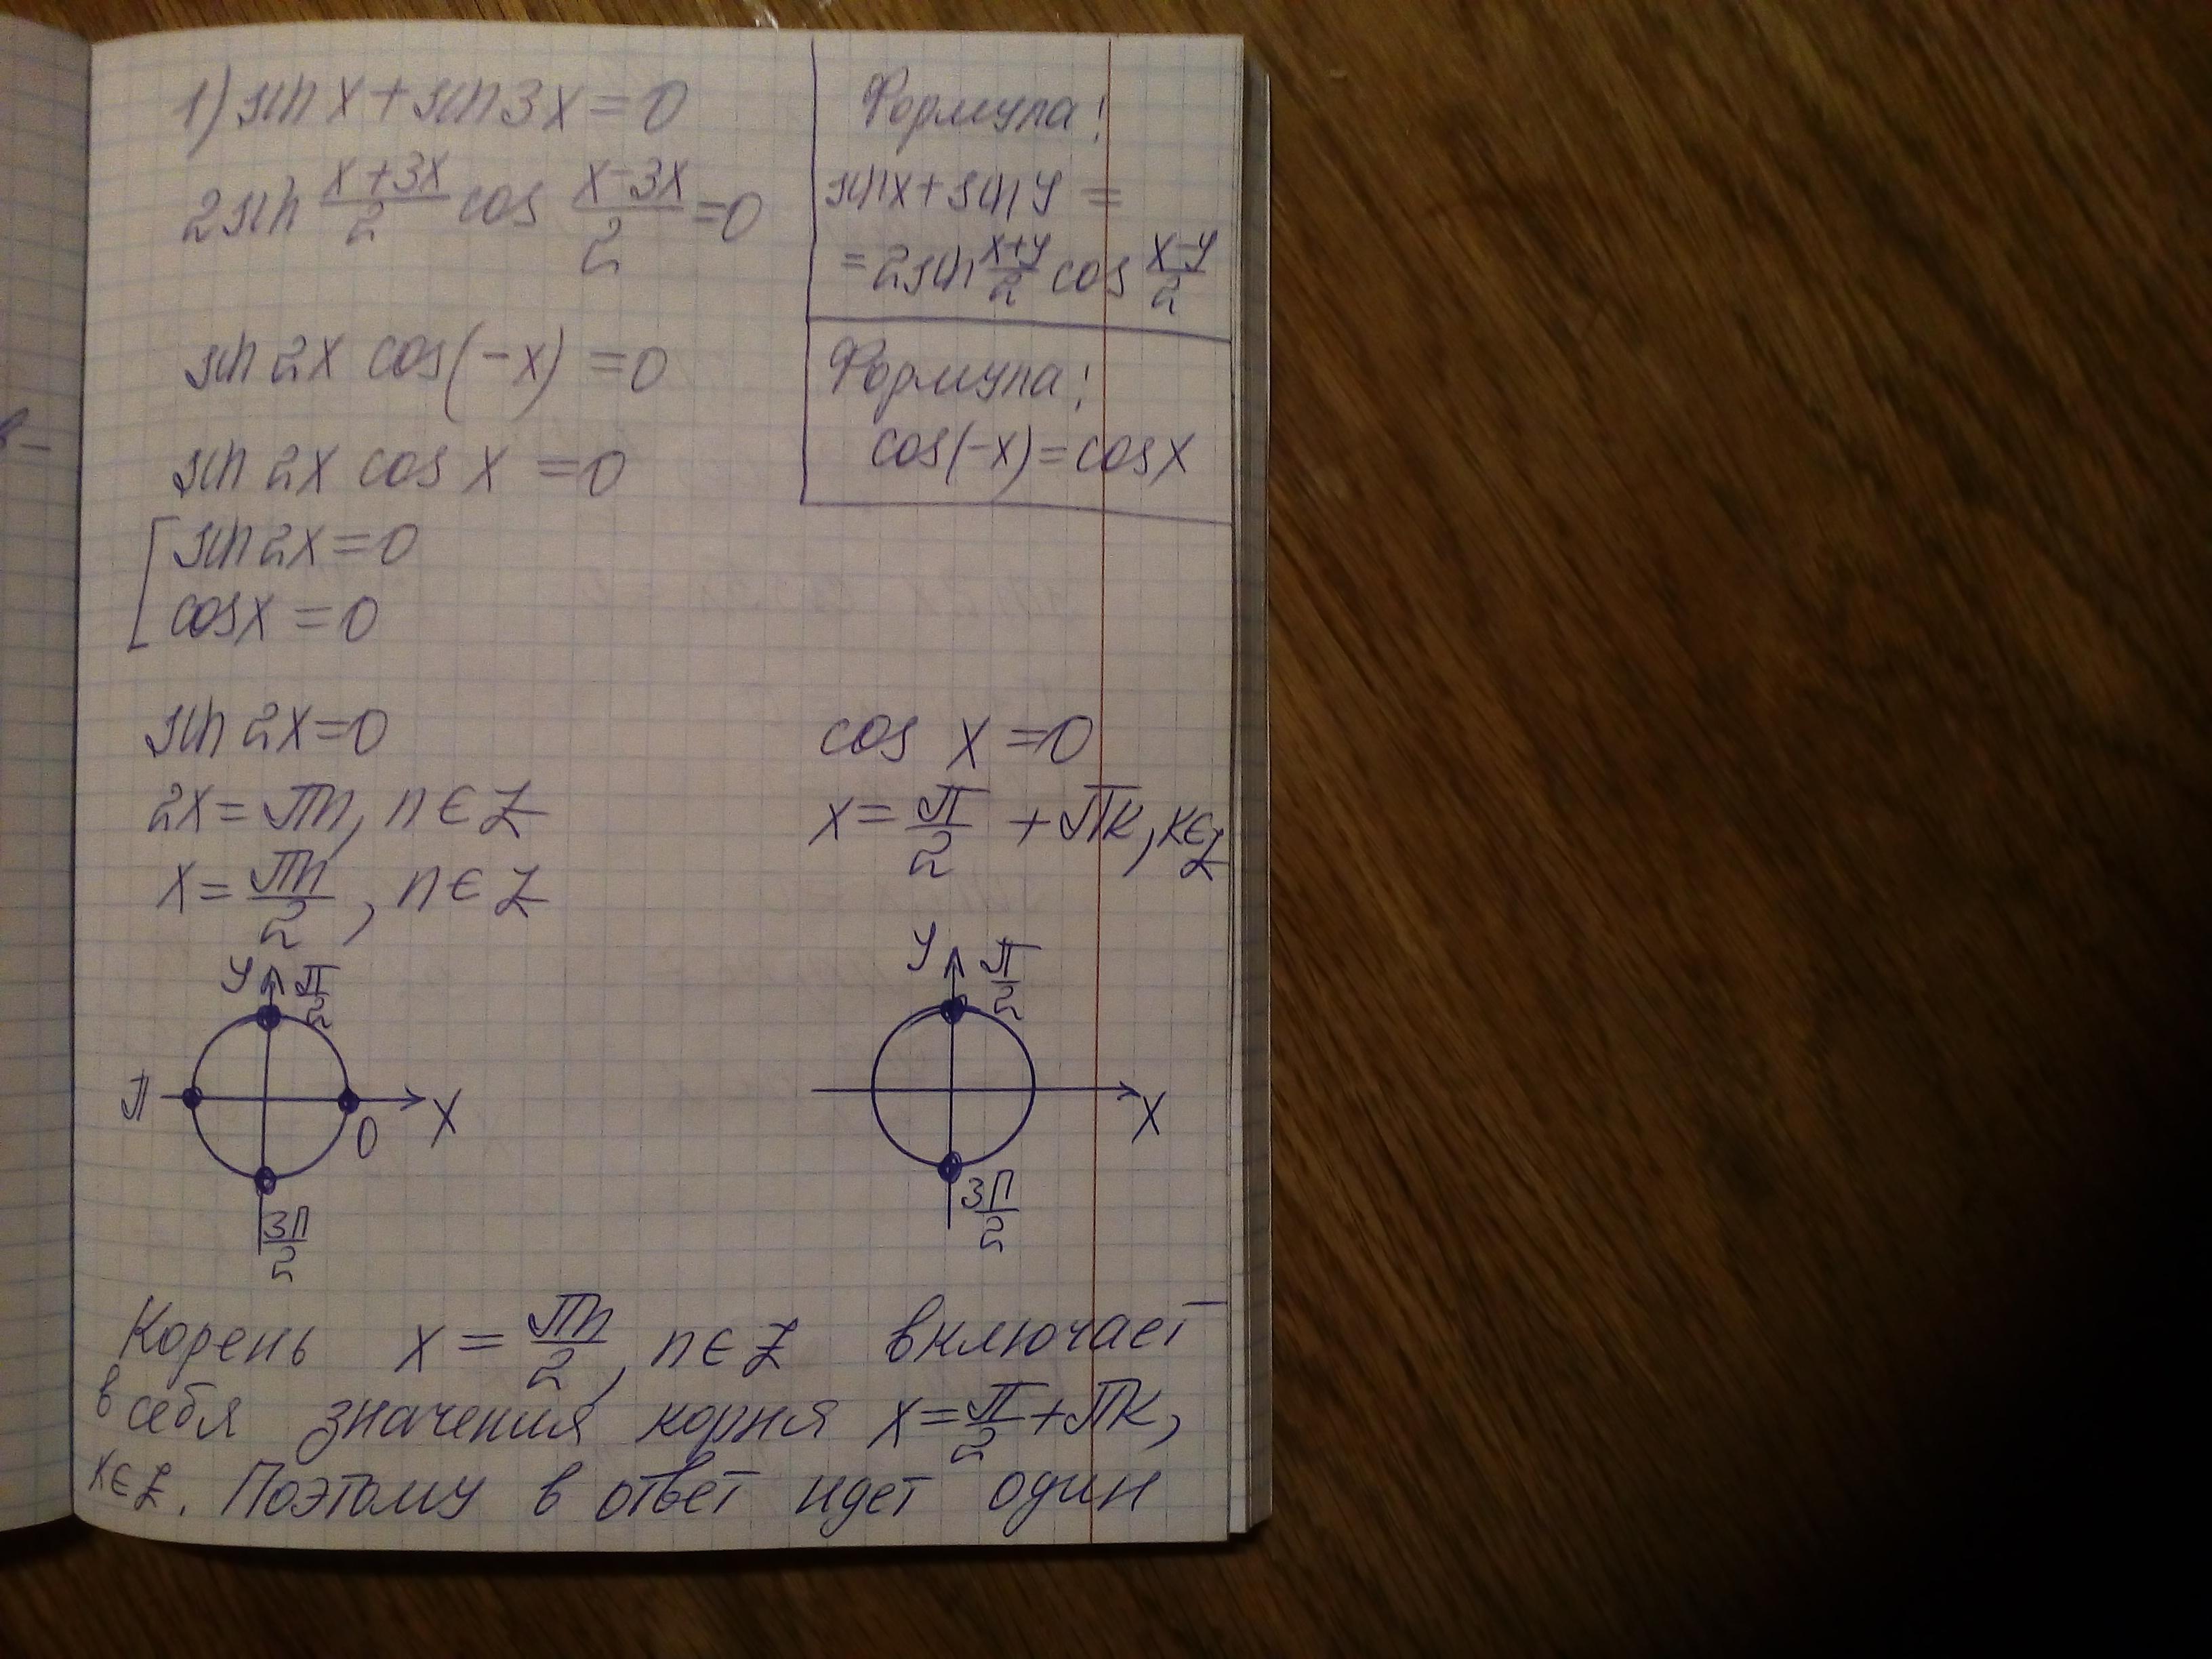 1) sin x + sin 3x = 0
2 sin (x+3x)/2 cos (x-3x)/2 = 0
sin 2x cos(-x) = 0
sin 2x cos x = 0
[ sin 2x = 0
cos x = 0
Формула:
sin x + sin y =
= 2 sin (x+y)/2 cos (x-y)/2
Формула:
cos(-x) = cos x
sin 2x = 0
2x = πn, n ∈ Z
x = πn/2, n ∈ Z
cos x = 0
x = π/2 + πк, к ∈ Z
y π/2
π 0 x
3π/2
y π/2
x
3π/2
Корень x = πn/2, n ∈ Z включает
в себя значения корня x = π/2 + πк,
к ∈ Z. Поэтому в ответ идет один